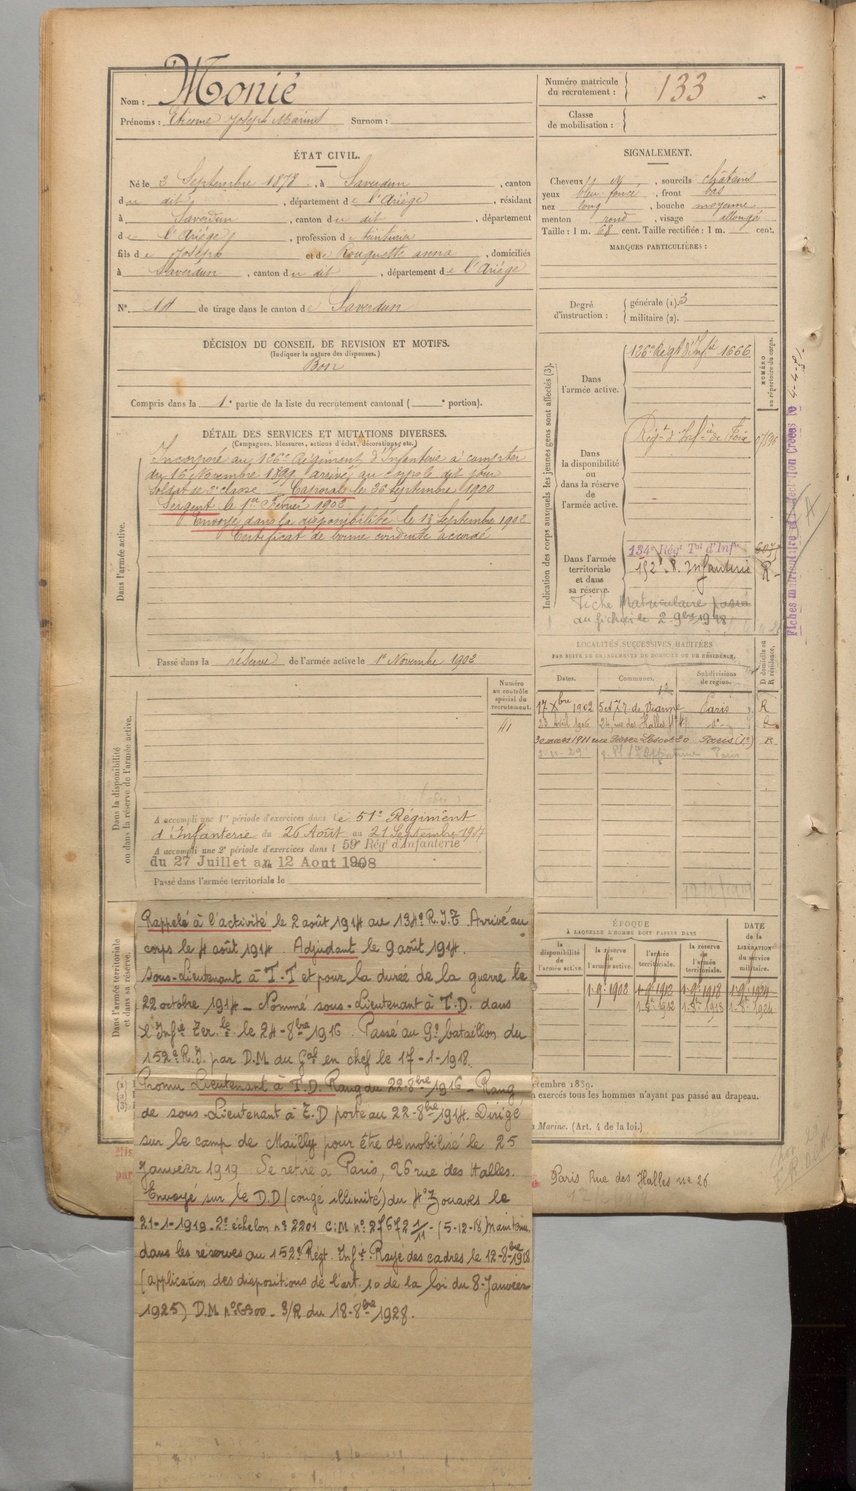 Nom : Monié
Prénoms : Etienne Joseph Marius Surnom :
Numéro matricule du recrutement : 133
Classe de mobilisation :
ÉTAT CIVIL.
Né le 3 Septembre 1878, à Saverdun, canton
du dit, département de l'Ariège, résidant
à Saverdun, canton du dit, département
de l'Ariège, profession de
fils de Joseph et de Rouquette anna, domiciliés
à Saverdun, canton du dit, département de l'Ariège
N° de tirage dans le canton de Saverdun
SIGNALEMENT.
Cheveux, sourcils châtains
yeux bleu foncé, front bas
nez long, bouche moyenne
menton rond, visage allongé
Taille : 1 m. 68 cent. Taille rectifiée : 1 m. cent.
MARQUES PARTICULIÈRES :
Degré d'instruction : générale (1). 3
militaire (2).
DÉCISION DU CONSEIL DE REVISION ET MOTIFS.
(Indiquer la nature des dispenses.)
Bon
Compris dans la 1e partie de la liste du recrutement cantonal ( portion).
DÉTAIL DES SERVICES ET MUTATIONS DIVERSES.
(Campagnes, blessures, actions d'éclat, décorations, etc.)
Dans l'armée active.
Incorporé au 126e Régiment d'Infanterie à compter
du 16 Novembre 1899, arrivé au corps le dit jour
Soldat de 2e classe Caporal le 26 Septembre 1900
Sergent le 1er Février 1902
Envoyé dans la disponibilité le 13 Septembre 1902
Certificat de bonne conduite accordé
Passé dans la réserve de l'armée active le 1er Novembre 1902
Indication des corps auxquels les jeunes gens sont affectés (3).
NUMÉRO au répertoire du corps.
Dans l'armée active. 126e Régt d'Infie 1666
Dans la disponibilité ou dans la réserve de l'armée active. Régt d'Infie de Foix
Dans l'armée territoriale et dans sa réserve. 134e Régt Tal d'Infie
152e R. Infanterie R
Fiche Matriculaire passée
au fichier le 2 9bre 1918
LOCALITÉS SUCCESSIVES HABITÉES
PAR SUITE DE CHANGEMENTS DE DOMICILE OU DE RÉSIDENCE.
Dates. Communes. Subdivisions de région. D domicile ou R résidence.
17 Xbre 1902 Paris R
26 rue des Halles do R
30 mars 1911 Paris (1er) R
Dans la disponibilité ou dans la réserve de l'armée active.
Numéro au contrôle spécial du recrutement.
A accompli une 1re période d'exercices dans le 51e Régiment
d'Infanterie du 26 Août au 21 Septembre
A accompli une 2e période d'exercices dans l 59e Rég. d'Infanterie
du 27 Juillet au 12 Aout 1908
Passé dans l'armée territoriale le
Dans l'armée territoriale et dans sa réserve.
Rappelé à l'activité le 2 août 1914 au 134e R.I.T. Arrivé au
corps le 4 août 1914. Adjudant le 9 août 1914.
Sous-Lieutenant à T.T et pour la durée de la guerre le
22 octobre 1914 – Nommé sous-Lieutenant à T.D. dans
l'Infie Ter.le le 24-8bre 1916. Passé au 9e bataillon du
152e R.I. par D.M du Gal en chef le 17-1-1918.
Promu Lieutenant à T.D. Rang du 22-8bre 1916 – Rang
de sous-Lieutenant à T.D porté au 22-8bre 1914. Dirigé
sur le camp de Mailly pour être démobilisé le 25
Janvier 1919 Se retire à Paris, 26 rue des Halles.
Envoyé sur le D.D (congé illimité) du 4e Zouaves le
21-1-1919. 2e échelon no 2201 C.M no 27672 1/11 - (5-12-18) Maintenu
dans les réserves au 152e Régt. Infie. Rayé des cadres le 12-8bre 1928
(application des dispositions de l'art. 10 de la loi du 8-Janvier
1925) D.M no 6300 - 3/R du 18-8bre 1928.
ÉPOQUE
À LAQUELLE L'HOMME DOIT PASSER DANS
DATE de la LIBÉRATION du service militaire.
la disponibilité de l'armée active. la réserve de l'armée active. l'armée territoriale. la réserve de l'armée territoriale.
1-9-1902 1-9-1912 1-9-1918 1-9-1924
1-8bre 1912 1-8bre 1918 1-8bre 1924
décembre 1889.
exercés tous les hommes n'ayant pas passé au drapeau.
Marine. (Art. 4 de la loi.)
Paris Rue des Halles no 26